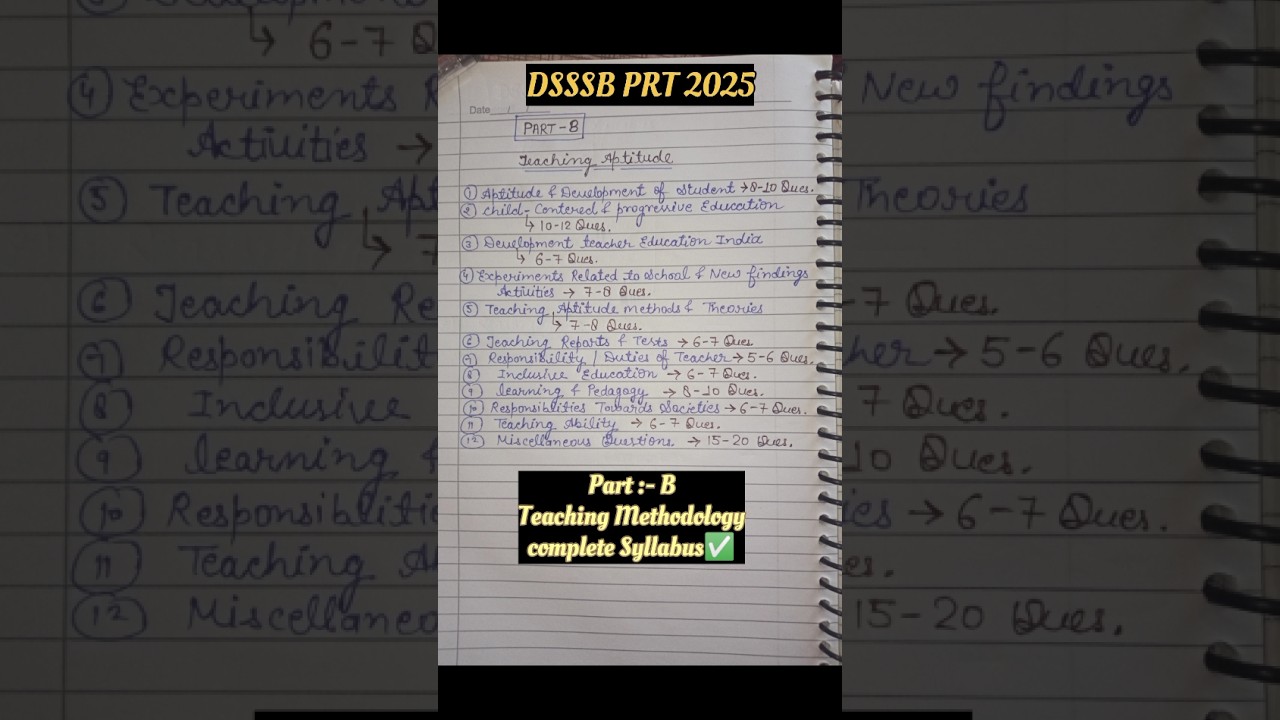 DSSSB PRT 2025
Date
PART-B
Teaching Aptitude
① Aptitude & Development of student → 8-10 Ques.
② child-Contered & progressive Education
↳ 10-12 Ques.
③ Development teacher Education India
↳ 6-7 Ques.
④ Experiments Related to School & New findings
Activities → 7-8 Ques.
⑤ Teaching Aptitude methods & Theories
↳ 7-8 Ques.
⑥ Teaching Reports & Tests → 6-7 Ques
⑦ Responsibility / Duties of Teacher → 5-6 Ques.
⑧ Inclusive Education → 6-7 Ques.
⑨ learning & Pedagogy → 8-10 Ques.
⑩ Responsiblities Towards Societies → 6-7 Ques.
⑪ Teaching Ability → 6-7 Ques.
⑫ Miscellaneous Questions → 15-20 Ques.
Part :- B
Teaching Methodology
complete Syllabus✅